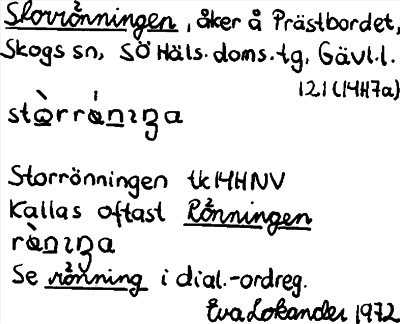 Storrönningen, åker å Prästbordet,
Skogs sn, SÖ Häls. doms.tg, Gävl.l.
121(14H7a)
Storrönningen tk14HNV
Kallas oftast Rönningen
Se rönning i dial.-ordreg.
Eva Lokander 1972